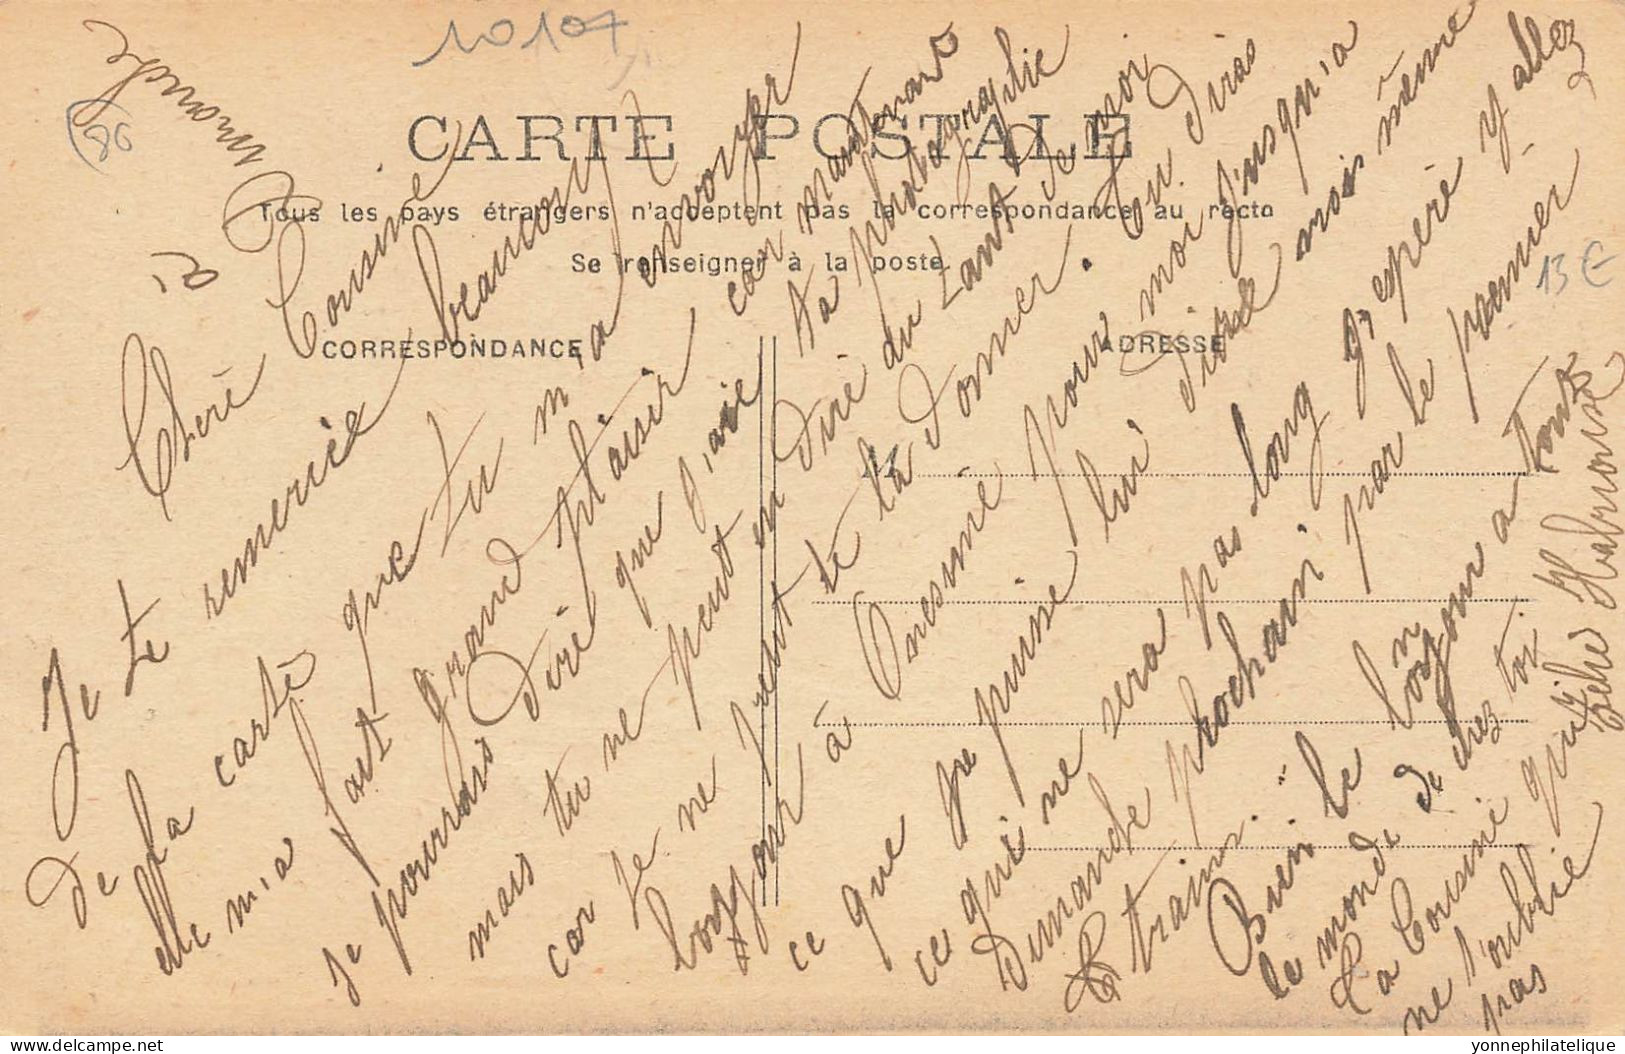 10107
86
à Dimanche
CARTE POSTALE
Tous les pays étrangers n'acceptent pas la correspondance au recto
Se renseigner à la poste.
CORRESPONDANCE
ADRESSE
13 €
Cheré Cousine
Je te remerciée beaucoup
De la carté que tu m'a envoyer
elle m'a fait grand plaisir car maintenant
je pourrais Diré que j'aie ta photographie
mais tu ne peut en Dire du
car je ne peut te la donner. Tu Diras
bonjour à Onesimé pour moi jusqu'a
ce que je puise lui Diré moi même
ce qui ne sera pas long j'espère y aller
Dimanche prochain par le premier
trains.
Bien le bonjour a tout
le monde de chez toi.
Ta Cousine qui
ne l'oublie
pas